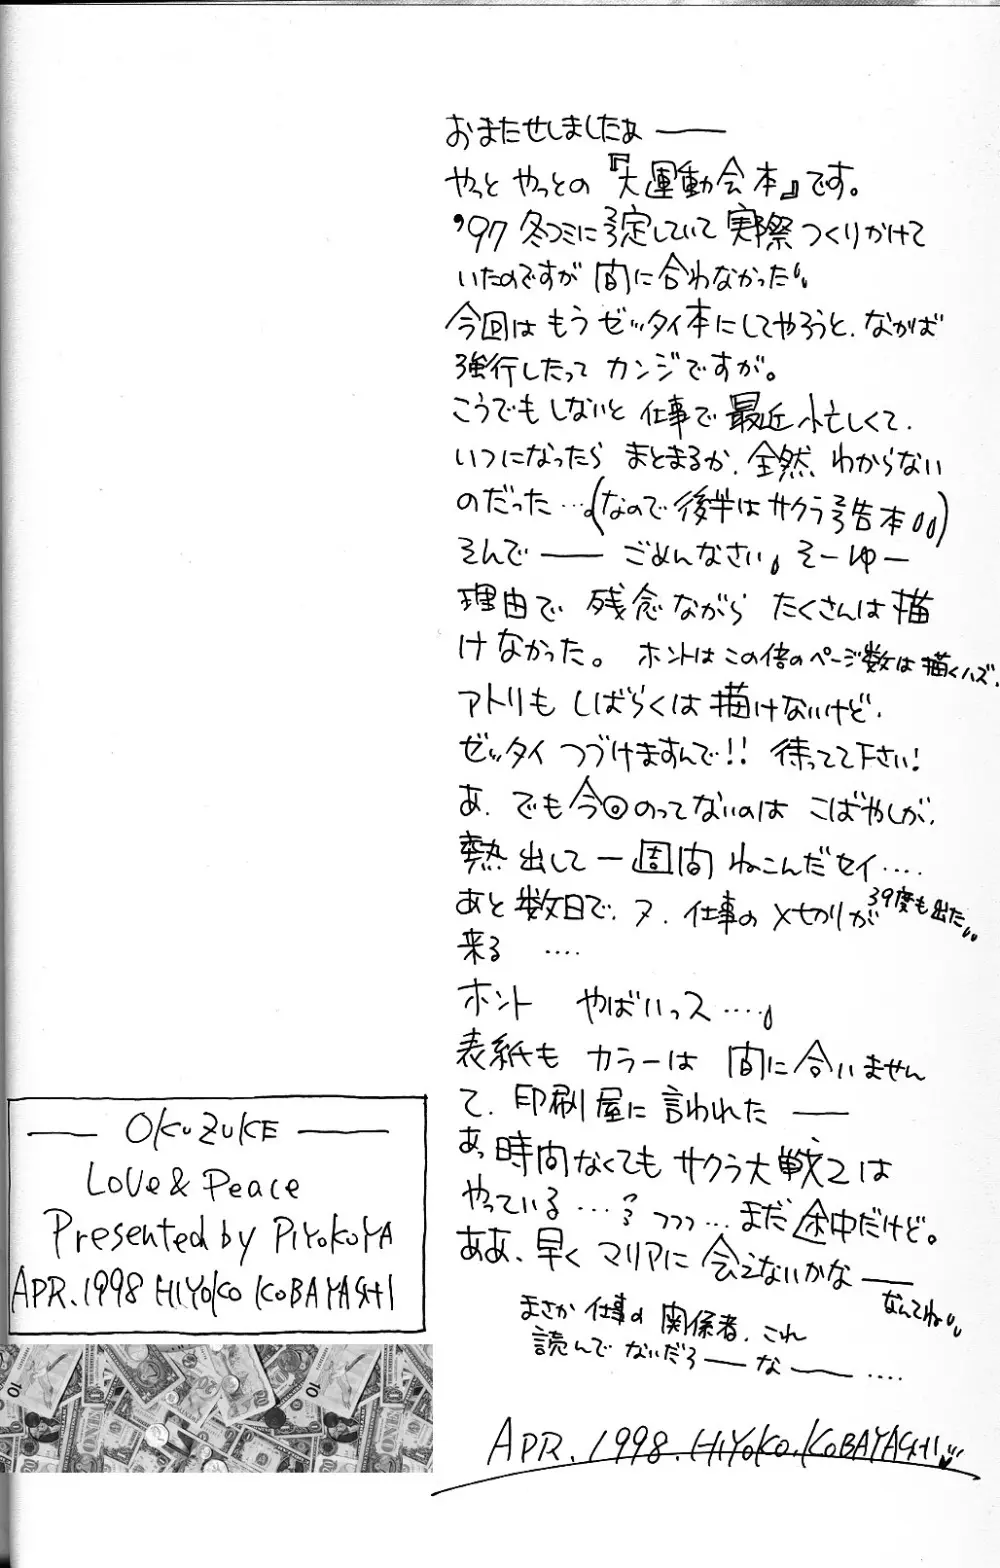 おまたせしましたぁ ──
やっと やっとの『大運動会本』です。
'97 冬コミに予定していて 実際つくりかけて
いたのですが 間に合わなかった
今回は もう ゼッタイ本にしてやろうと、なかば
強行したって カンジですが。
こうでもしないと 仕事で 最近忙しくて、
いつになったら まとまるか、全然 わからない
のだった…(なので後半はサクラ予告本)
そんで ── ごめんなさい。 そーゆー
理由で 残念ながら たくさんは描
けなかった。 ホントはこの倍のページ数は描くハズ、
アトリも しばらくは 描けないけど、
ゼッタイ つづけますんで!! 待ってて下さい!
あ、でも今回のってないのは こばやしが、
熱出して 一週間 ねこんだセイ‥‥
39度も出た
あと数日で、ヌ、仕事の 〆切りが
来る ‥‥
ホント やばいっス‥‥
表紙も カラーは 間に合いません
て、印刷屋に 言われた ──
あっ 時間なくても サクラ大戦2は
やっている…? つつつ… まだ途中だけど。
ああ、早く マリアに 会えないかな ──
なんてね
まさか 仕事の 関係者、これ
読んで ないだろ ── な ── ‥‥
APR. 1998. HIYOKO. KOBAYASHI
── OKUZUKE ──
LOVE & Peace
Presented by PIYOKOYA
APR. 1998 HIYOKO KOBAYASHI